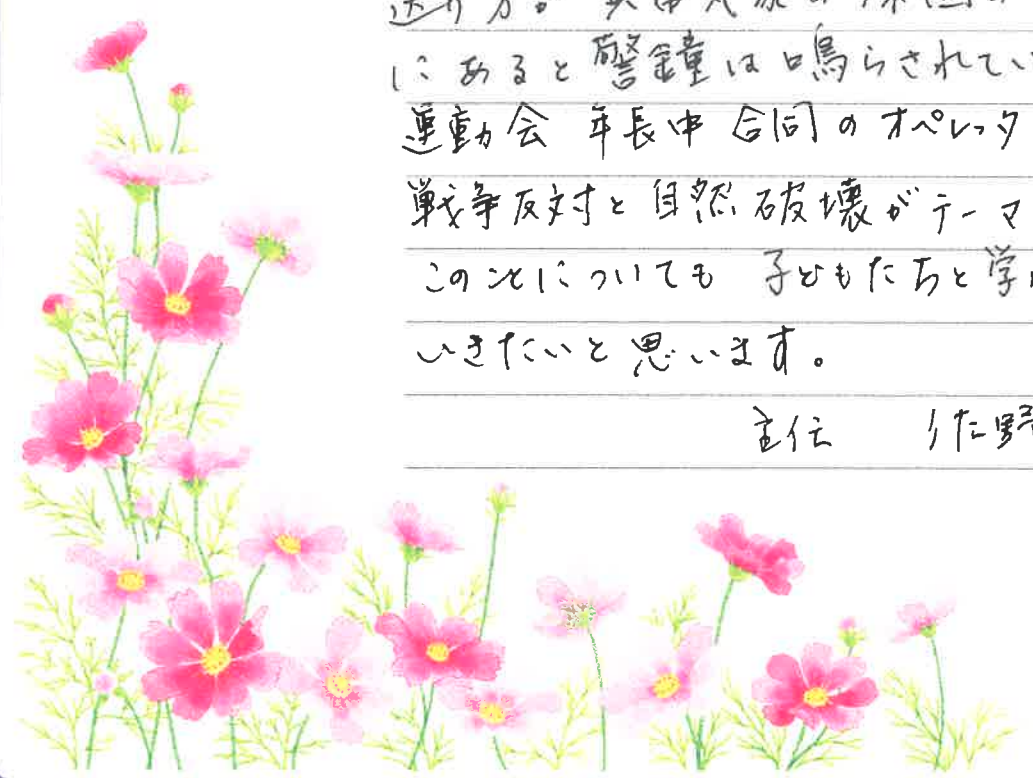 にあると警鐘は鳴らされてい
運動会 年長中 合同のオペレッタ
戦争反対と自然破壊がテーマ
このことについても 子どもたちと学
いきたいと思います。
主任 りた野